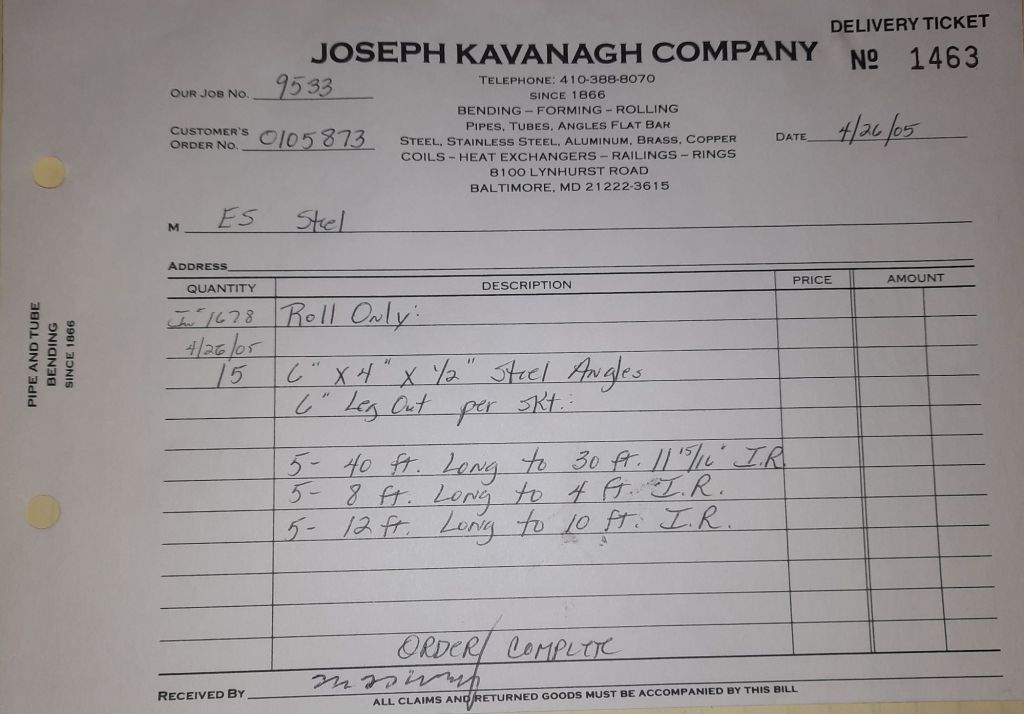 DELIVERY TICKET
JOSEPH KAVANAGH COMPANY
Nº 1463
TELEPHONE: 410-388-8070
OUR JOB NO. 9533
SINCE 1866
BENDING – FORMING – ROLLING
PIPES, TUBES, ANGLES FLAT BAR
CUSTOMER'S ORDER NO. 0105873
DATE 4/26/05
STEEL, STAINLESS STEEL, ALUMINUM, BRASS, COPPER
COILS – HEAT EXCHANGERS – RAILINGS – RINGS
8100 LYNHURST ROAD
BALTIMORE, MD 21222-3615
M ES Steel
ADDRESS
QUANTITY DESCRIPTION PRICE AMOUNT
1678 Roll Only:
4/26/05
15 6" X 4" X 1/2" Steel Angles
6" Leg Out per skt.:
5- 40 ft. Long to 30 ft. 11 15/16" I.R
5- 8 ft. Long to 4 ft. I.R.
5- 12 ft. Long to 10 ft. I.R.
ORDER COMPLETE
RECEIVED BY
ALL CLAIMS AND RETURNED GOODS MUST BE ACCOMPANIED BY THIS BILL
PIPE AND TUBE
BENDING
SINCE 1866